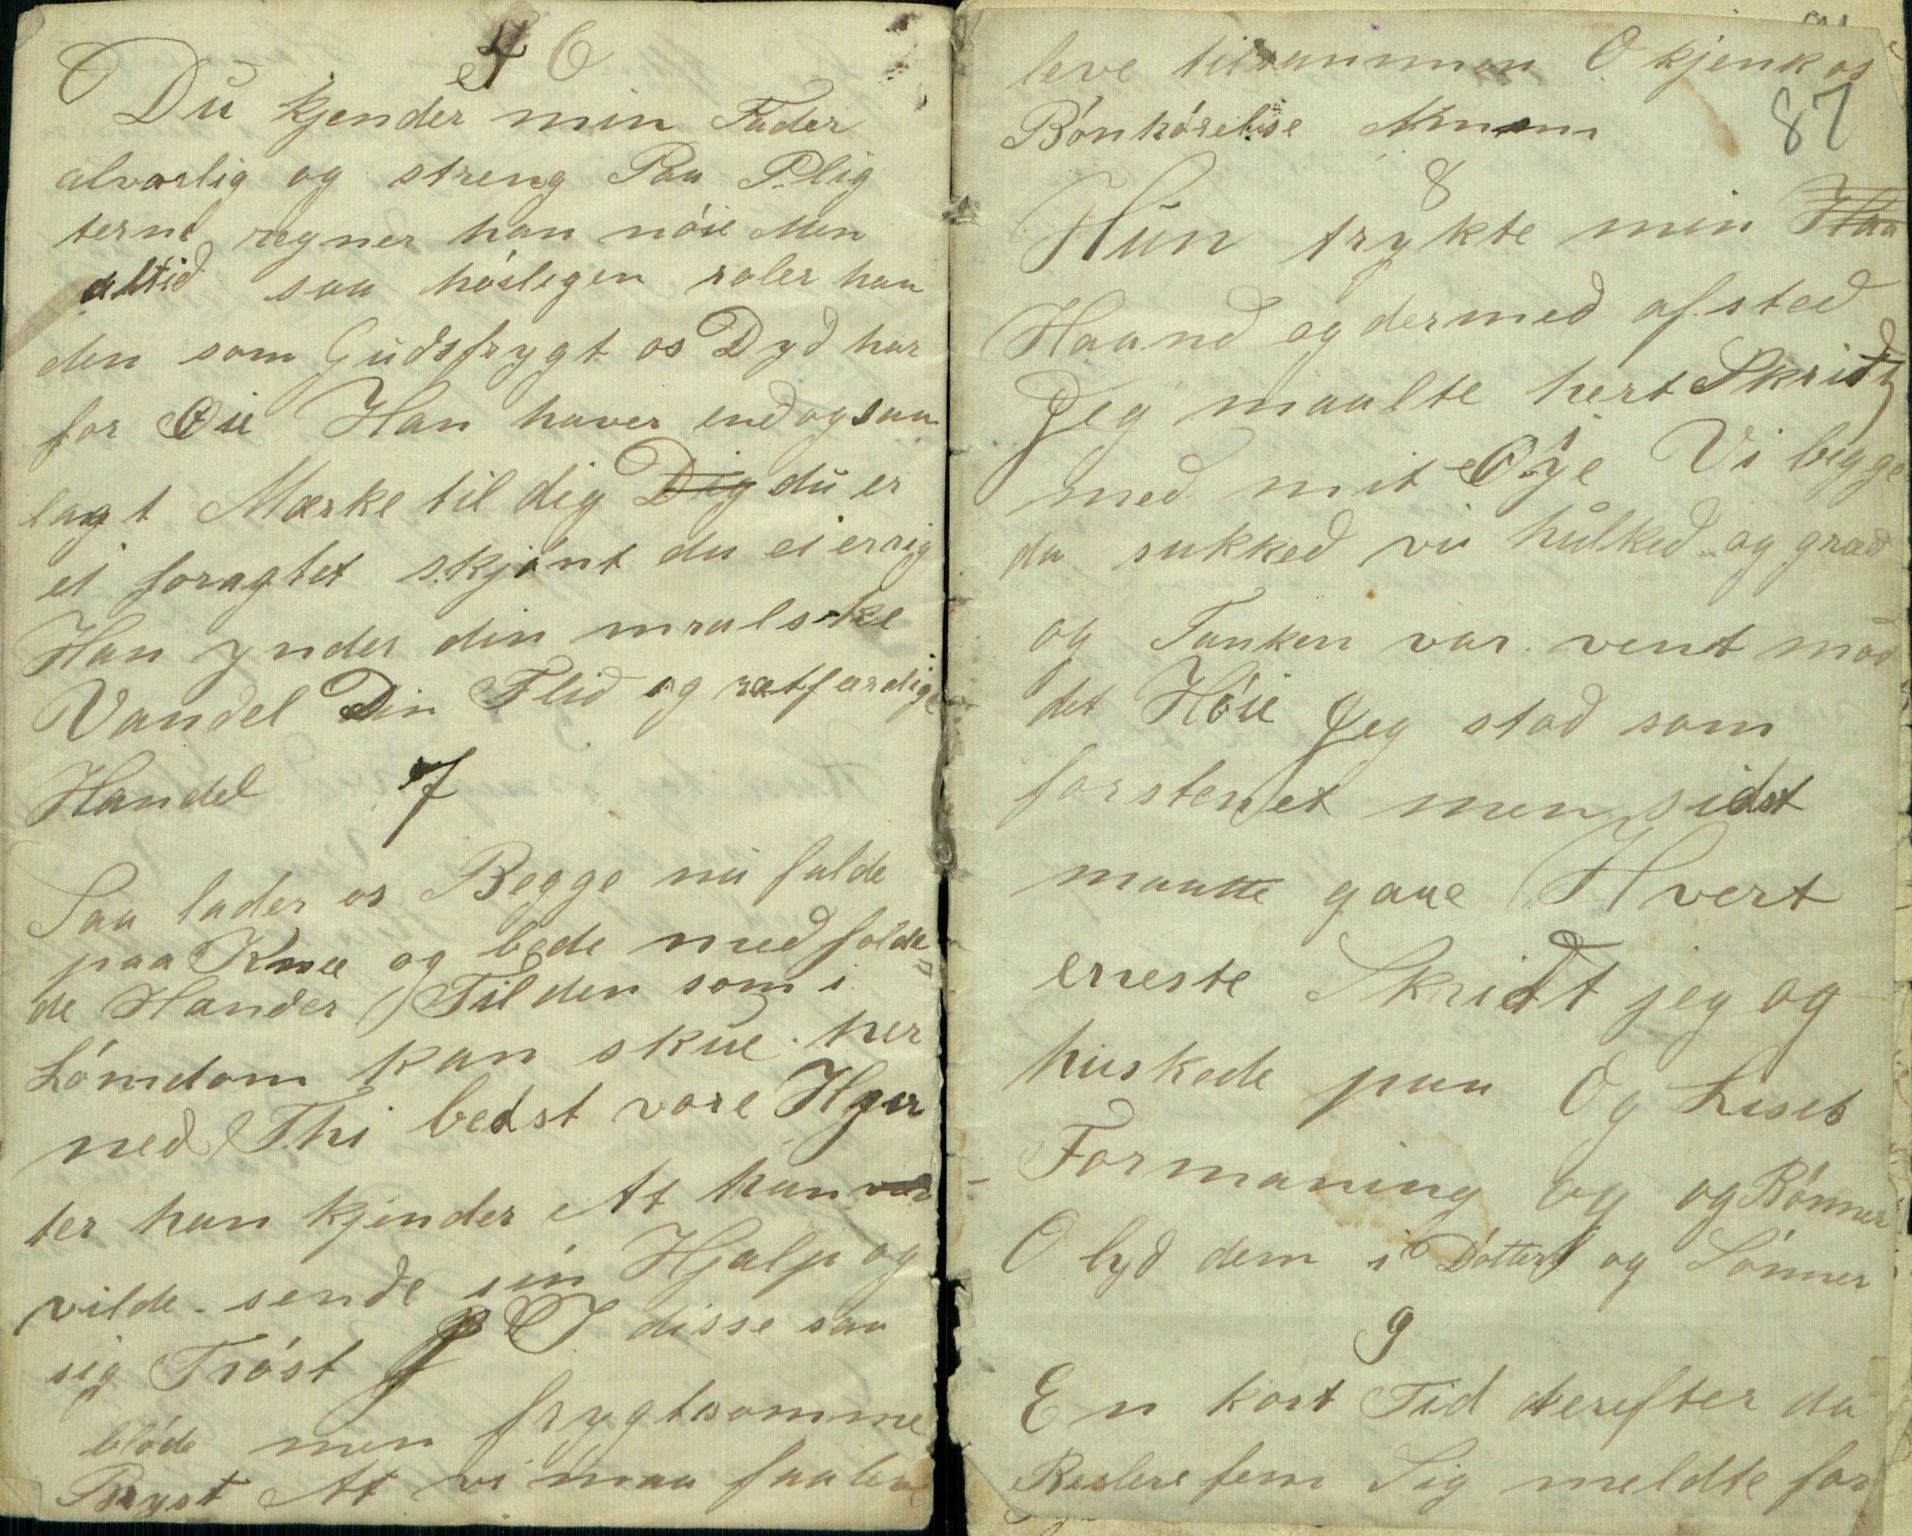 6
Du kjender min Fader
alvorlig og streng Paa Plig
terne regner han nóie Men
altid saa hóiligen roler han
den som Gudsfrygt os Dyd har
for Øie Han haver endogsaa
lagt Mærke til dig Dig du er
ei foragtet skjónt du ei er rig
Han ynder din mralske
Vandel Din Flid og rætfærdige
Handel 7
Saa lader os Begge nu falde
paa Knæ og bede med folde
de Hander Til den som i
Lómdom kan skue her
ned Thi bedst vore Hjer
ter han kjender At han
vilde sende sin Hjalp og
sig Tróst I disse saa
blóde men frygtsomme
Bryst At vi maa faa
leve tilsammen O skjenk os
Bónhórelse Amen
87
8
Hun trykte min Haa
Haand og dermed afsted
Jeg maalte hert Skridt
med mit Øye Vi begge
da sukked vi hulked og græd
og Tanken var vent mod
det Hóie Jeg stod som
forstenet men sidst
maatte gaae Hvert
eneste Skridt jeg og
huskede paa Og Lises
Formaning og og Bónner
O lyd dem i Dótter og Sónner
9
En kort Tid derefter da
Beslere fem Sig meldte for